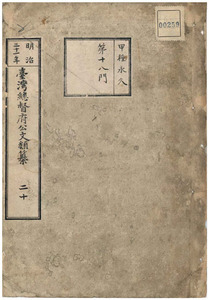 00259
甲種永久
第十八門
明治
三十一年
臺灣總督府公文類纂 二十